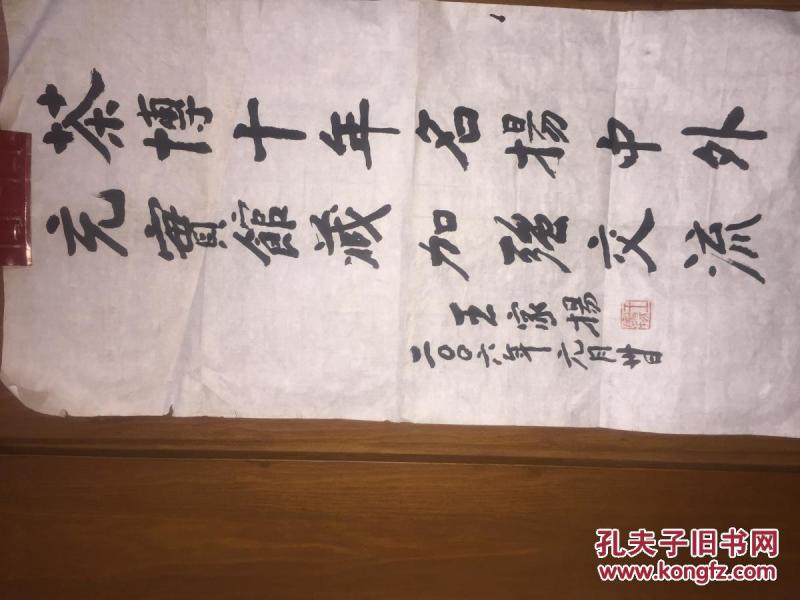 茶博十年名揚中外
充實館藏加強交流
王家揚
二〇〇六年元月廿日
孔夫子旧书网
www.kongfz.com